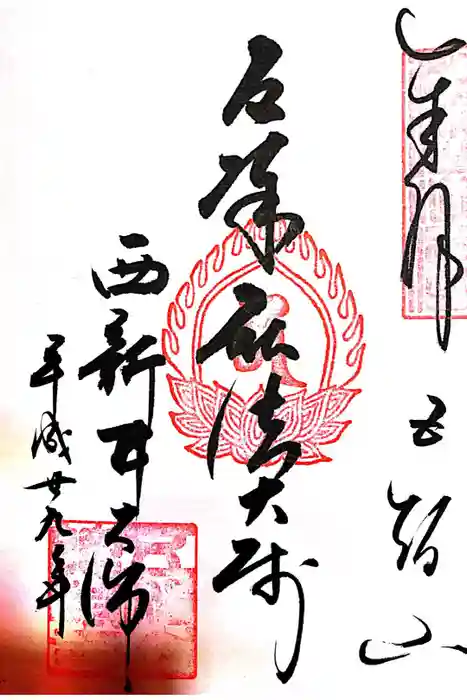 奉拝 五智山
厄除 弘法大師
西新井大師
平成廿九年